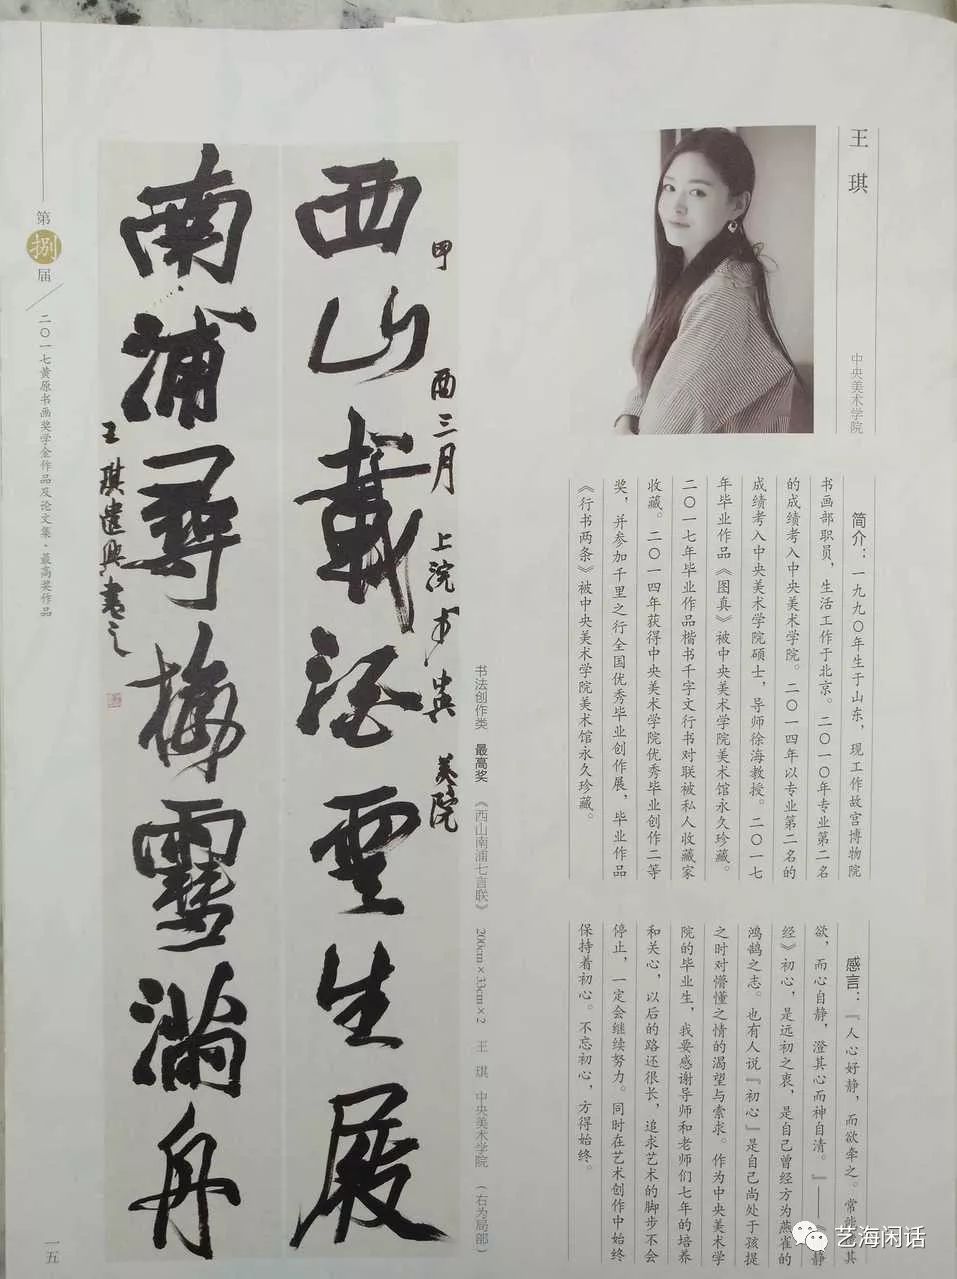 王琪
中央美术学院
简介：一九九〇年生于山东，现工作故宫博物院
书画部职员，生活工作于北京。二〇一〇年专业第二名
的成绩考入中央美术学院。二〇一四年以专业第二名的
成绩考入中央美术学院硕士，导师徐海教授。二〇一七
年毕业作品《图真》被中央美术学院美术馆永久珍藏。
二〇一七年毕业作品楷书千字文行书对联被私人收藏家
收藏。二〇一四年获得中央美术学院优秀毕业创作二等
奖，并参加千里之行全国优秀毕业创作展，毕业作品
《行书两条》被中央美术学院美术馆永久珍藏。
感言：『人心好静，而欲牵之。常能遣其
欲，而心自静，澄其心而神自清。』——《清静
经》初心，是远初之衷，是自己曾经方为燕雀的
鸿鹄之志。也有人说『初心』是自己尚处于孩提
之时对懵懂之情的渴望与索求。作为中央美术学
院的毕业生，我要感谢导师和老师们七年的培养
和关心，以后的路还很长，追求艺术的脚步不会
停止，一定会继续努力。同时在艺术创作中始终
保持着初心。不忘初心，方得始终。
书法创作类 最高奖 《西山南浦七言联》 200cm×33cm×2 王琪 中央美术学院 （右为局部）
西山载酒云生屐
酉三月 上浣 于 央 美院
南浦尋梅雪满舟
王琪遣興書之
第捌届
二〇一七黄原书画奖学金作品及论文集·最高奖作品
一五
艺海闲话